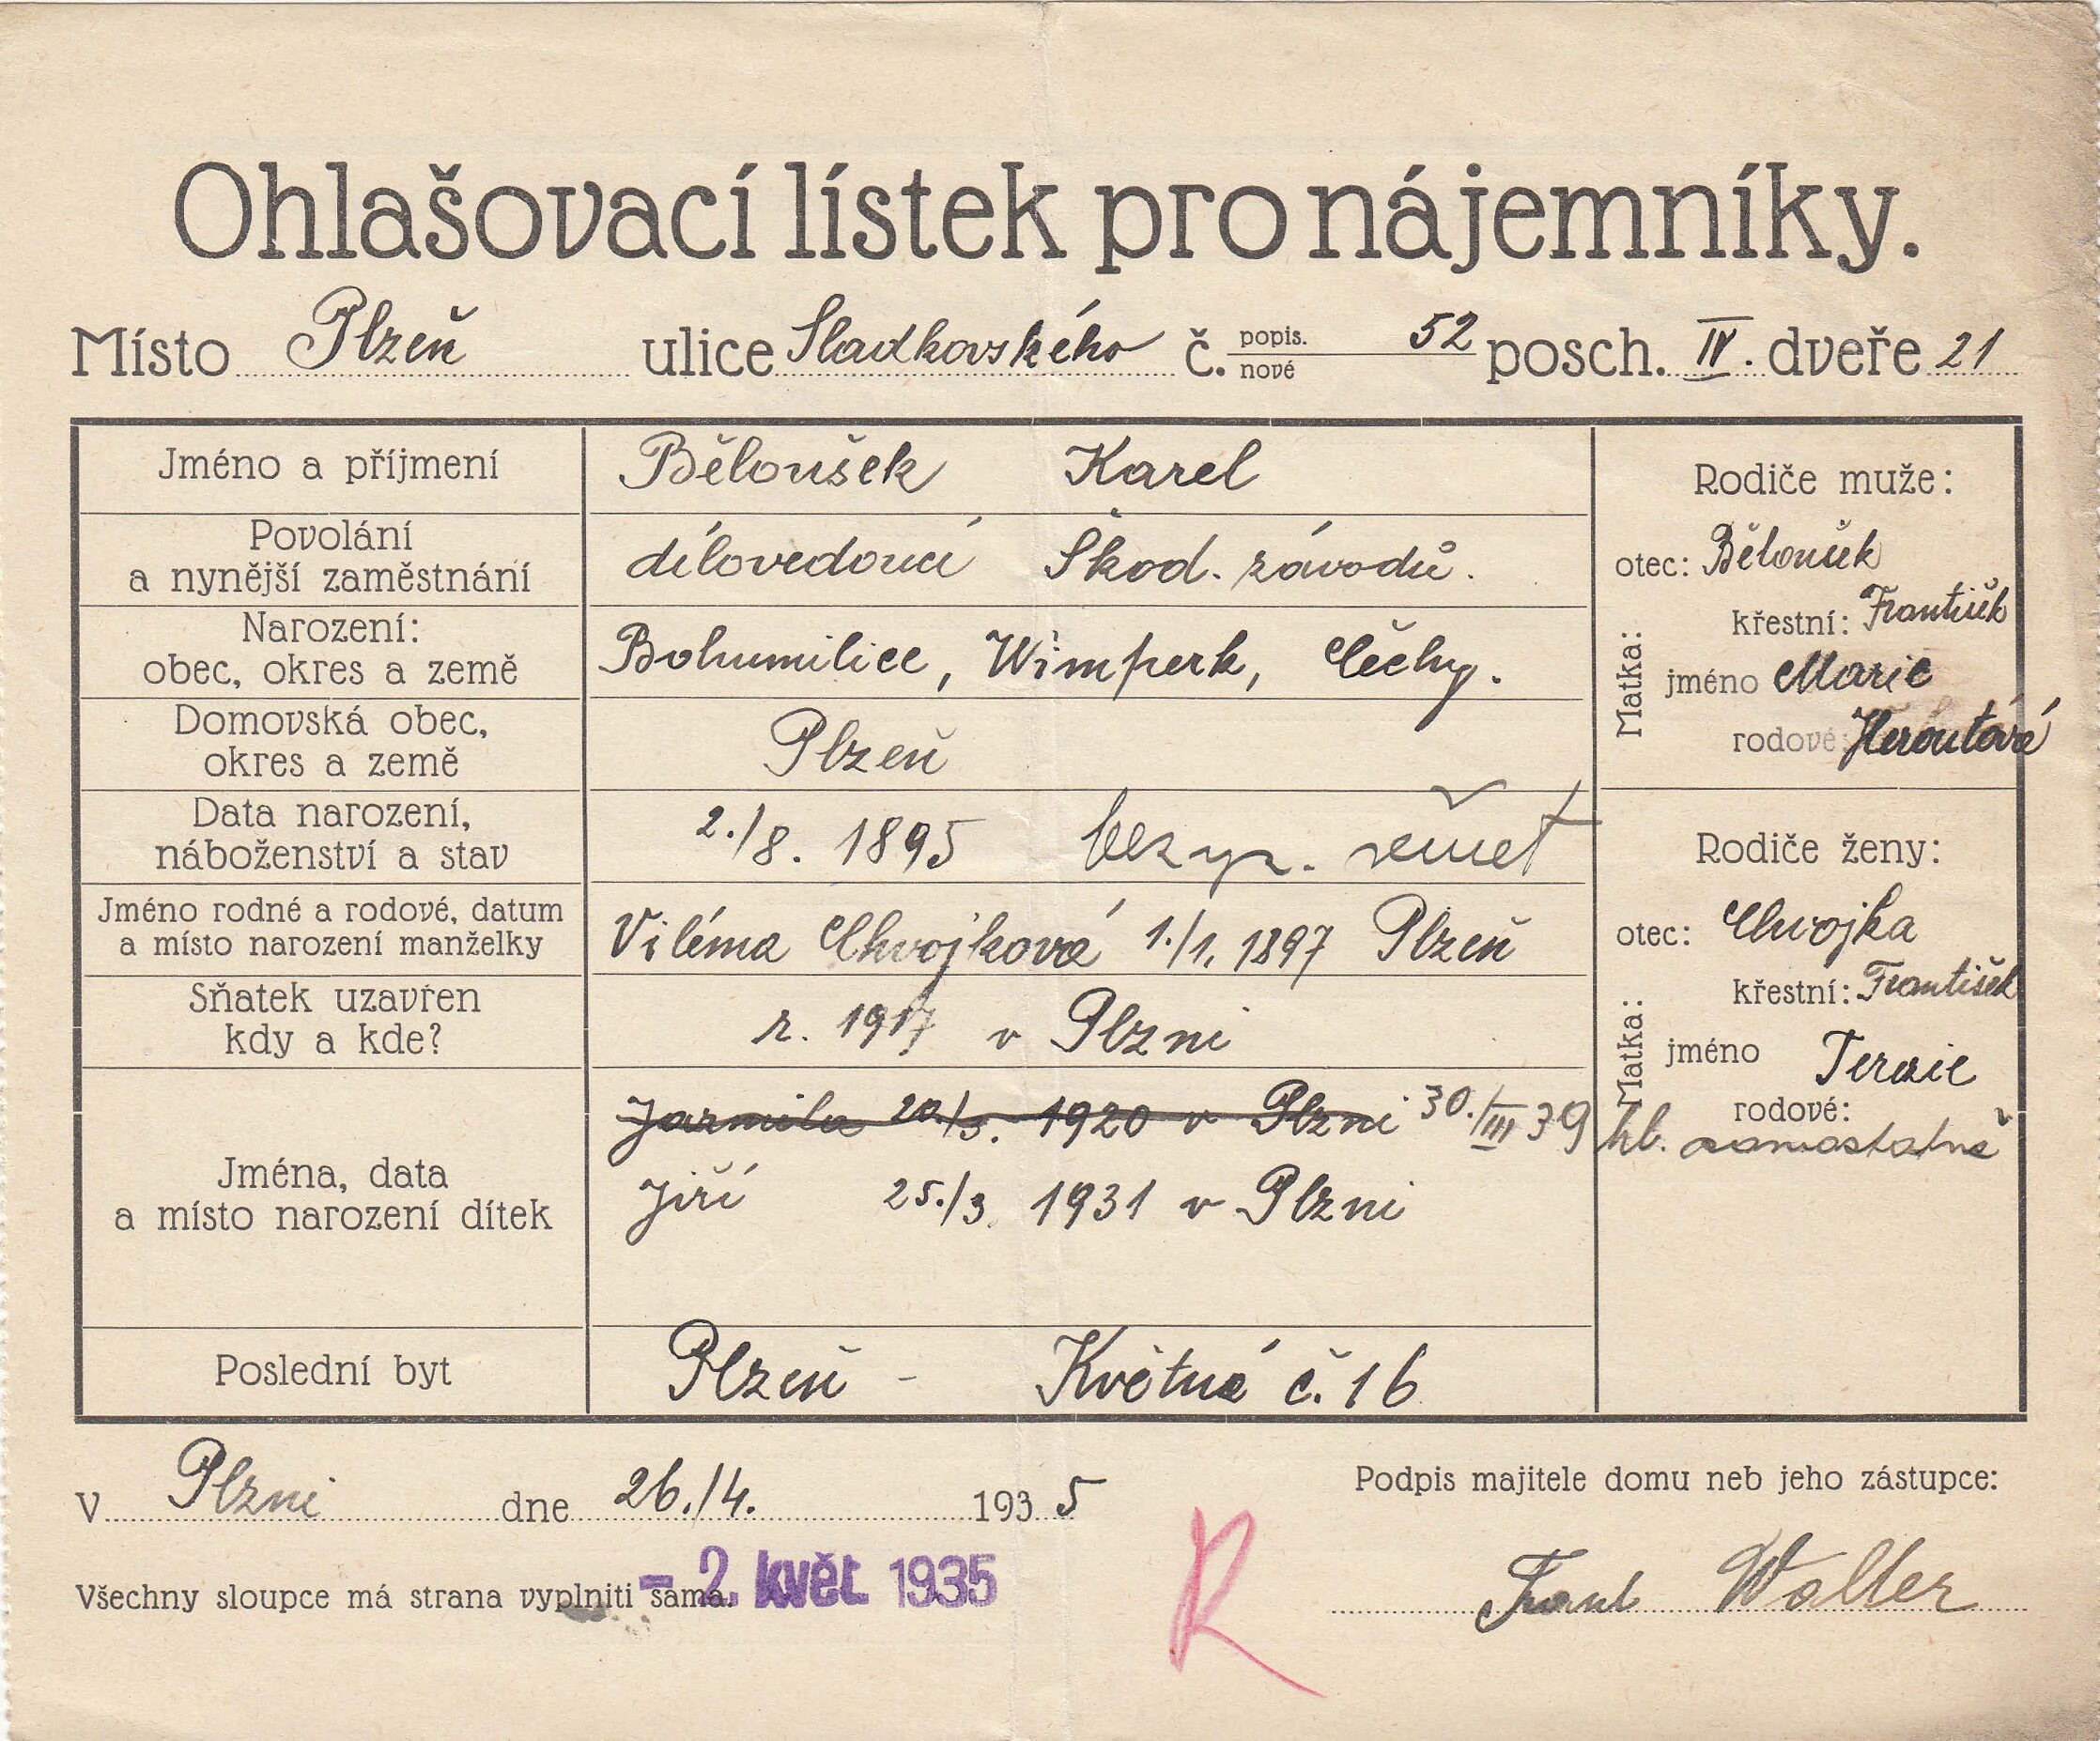 Ohlašovací lístek pro nájemníky.
Místo Plzeň ulice Sladkovského č. popis. nové 52 posch. IV. dveře 21
Jméno a příjmení
Běloušek Karel
Povolání
a nynější zaměstnání
dílovedoucí Škod. závodů.
Narození:
obec, okres a země
Bohumilice, Wimperk, Čechy.
Domovská obec,
okres a země
Plzeň
Data narození,
náboženství a stav
2./8. 1895 bez vyz. ženat
Jméno rodné a rodové, datum
a místo narození manželky
Viléma Chvojková 1./1. 1897 Plzeň
Sňatek uzavřen
kdy a kde?
r. 1917 v Plzni
Jména, data
a místo narození dítek
Jarmila 20./3. 1920 v Plzni 30./III 39 hl. samostatně
Jiří 25./3. 1931 v Plzni
Poslední byt
Plzeň - Květná č. 16
Rodiče muže:
otec: Běloušek
křestní: František
Matka:
jméno Marie
rodové: Heroutová
Rodiče ženy:
otec: Chvojka
křestní: František
Matka:
jméno Terezie
rodové:
V Plzni dne 26./4. 1935
Podpis majitele domu neb jeho zástupce:
Všechny sloupce má strana vyplniti sama.
- 2. květ. 1935
R
Walter